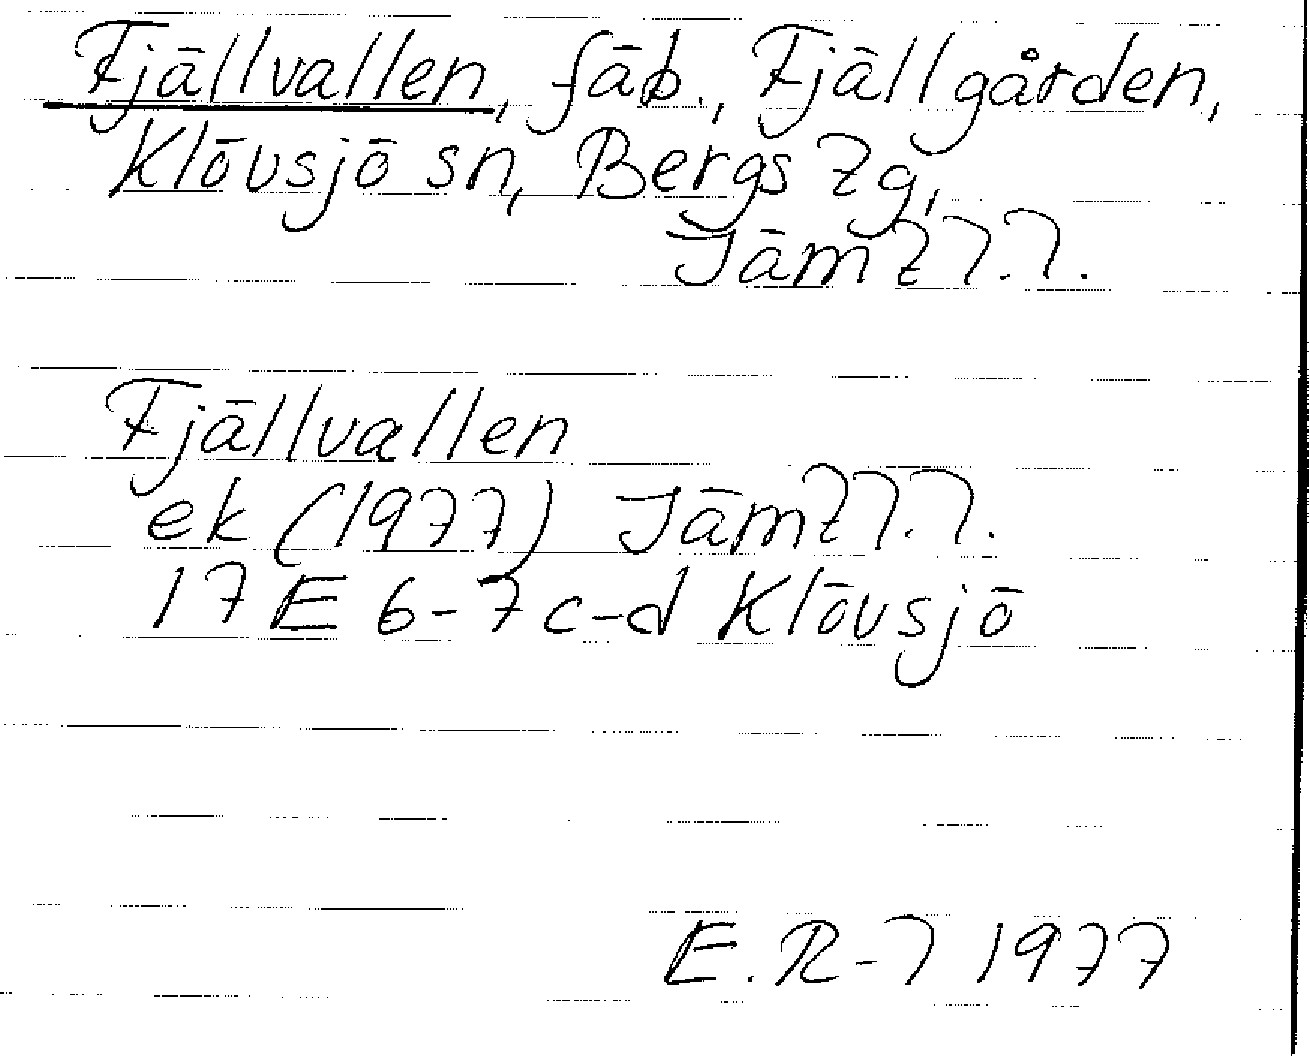 Fjällvallen, fäb., Fjällgården,
Klövsjö sn, Bergs tg,
Jämtl.l.
Fjällvallen
ek (1977) Jämtl.l.
17 E 6-7 c-d Klövsjö
E.R-l 1977